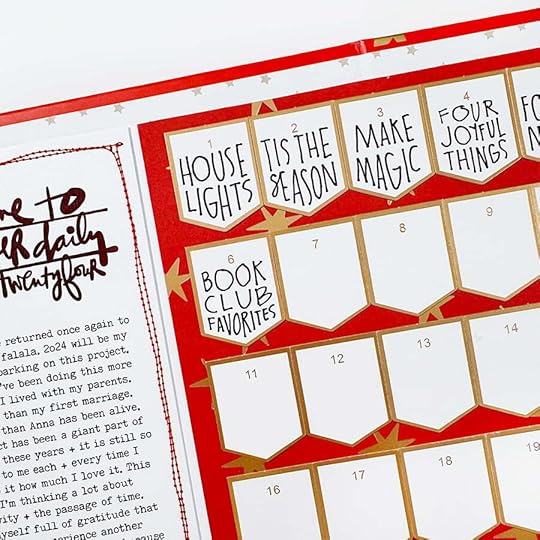 TO
daily
TWENTYfOUR
returned once again to
falala. 2024 will be my
barking on this project.
I've been doing this more
I lived with my parents.
than my first marriage.
than Anna has been alive.
ct has been a giant part of
these years + it is still so
to me each + every time I
it how much I love it. This
I'm thinking a lot about
vity + the passage of time.
yself full of gratitude that
erience another
because
1
HOUSE
LIGHTS
2
TIS THE
SEASON
3
MAKE
MAGIC
4
FOUR
JOYFUL
THINGS
6
BOOK
CLUB
FAVORITES
7
8
9
11
12
13
14
16
17
18
19